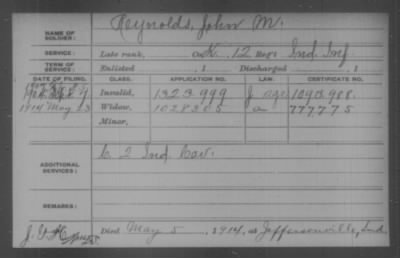 NAME OF SOLDIER: Reynolds, John M.
SERVICE: Late rank, Co. K. 12 Reg't Ind. Inf
TERM OF SERVICE: Enlisted , 1 Discharged , 1
DATE OF FILING. CLASS. APPLICATION NO. LAW. CERTIFICATE NO.
Invalid, 1323,999 J age 1093,988.
1914 May 23 Widow, 1028305 a 777,775
Minor,
ADDITIONAL SERVICES: C. 2 Ind. Cav.
REMARKS:
Died May 5, 1914, at Jeffersonville, Ind.